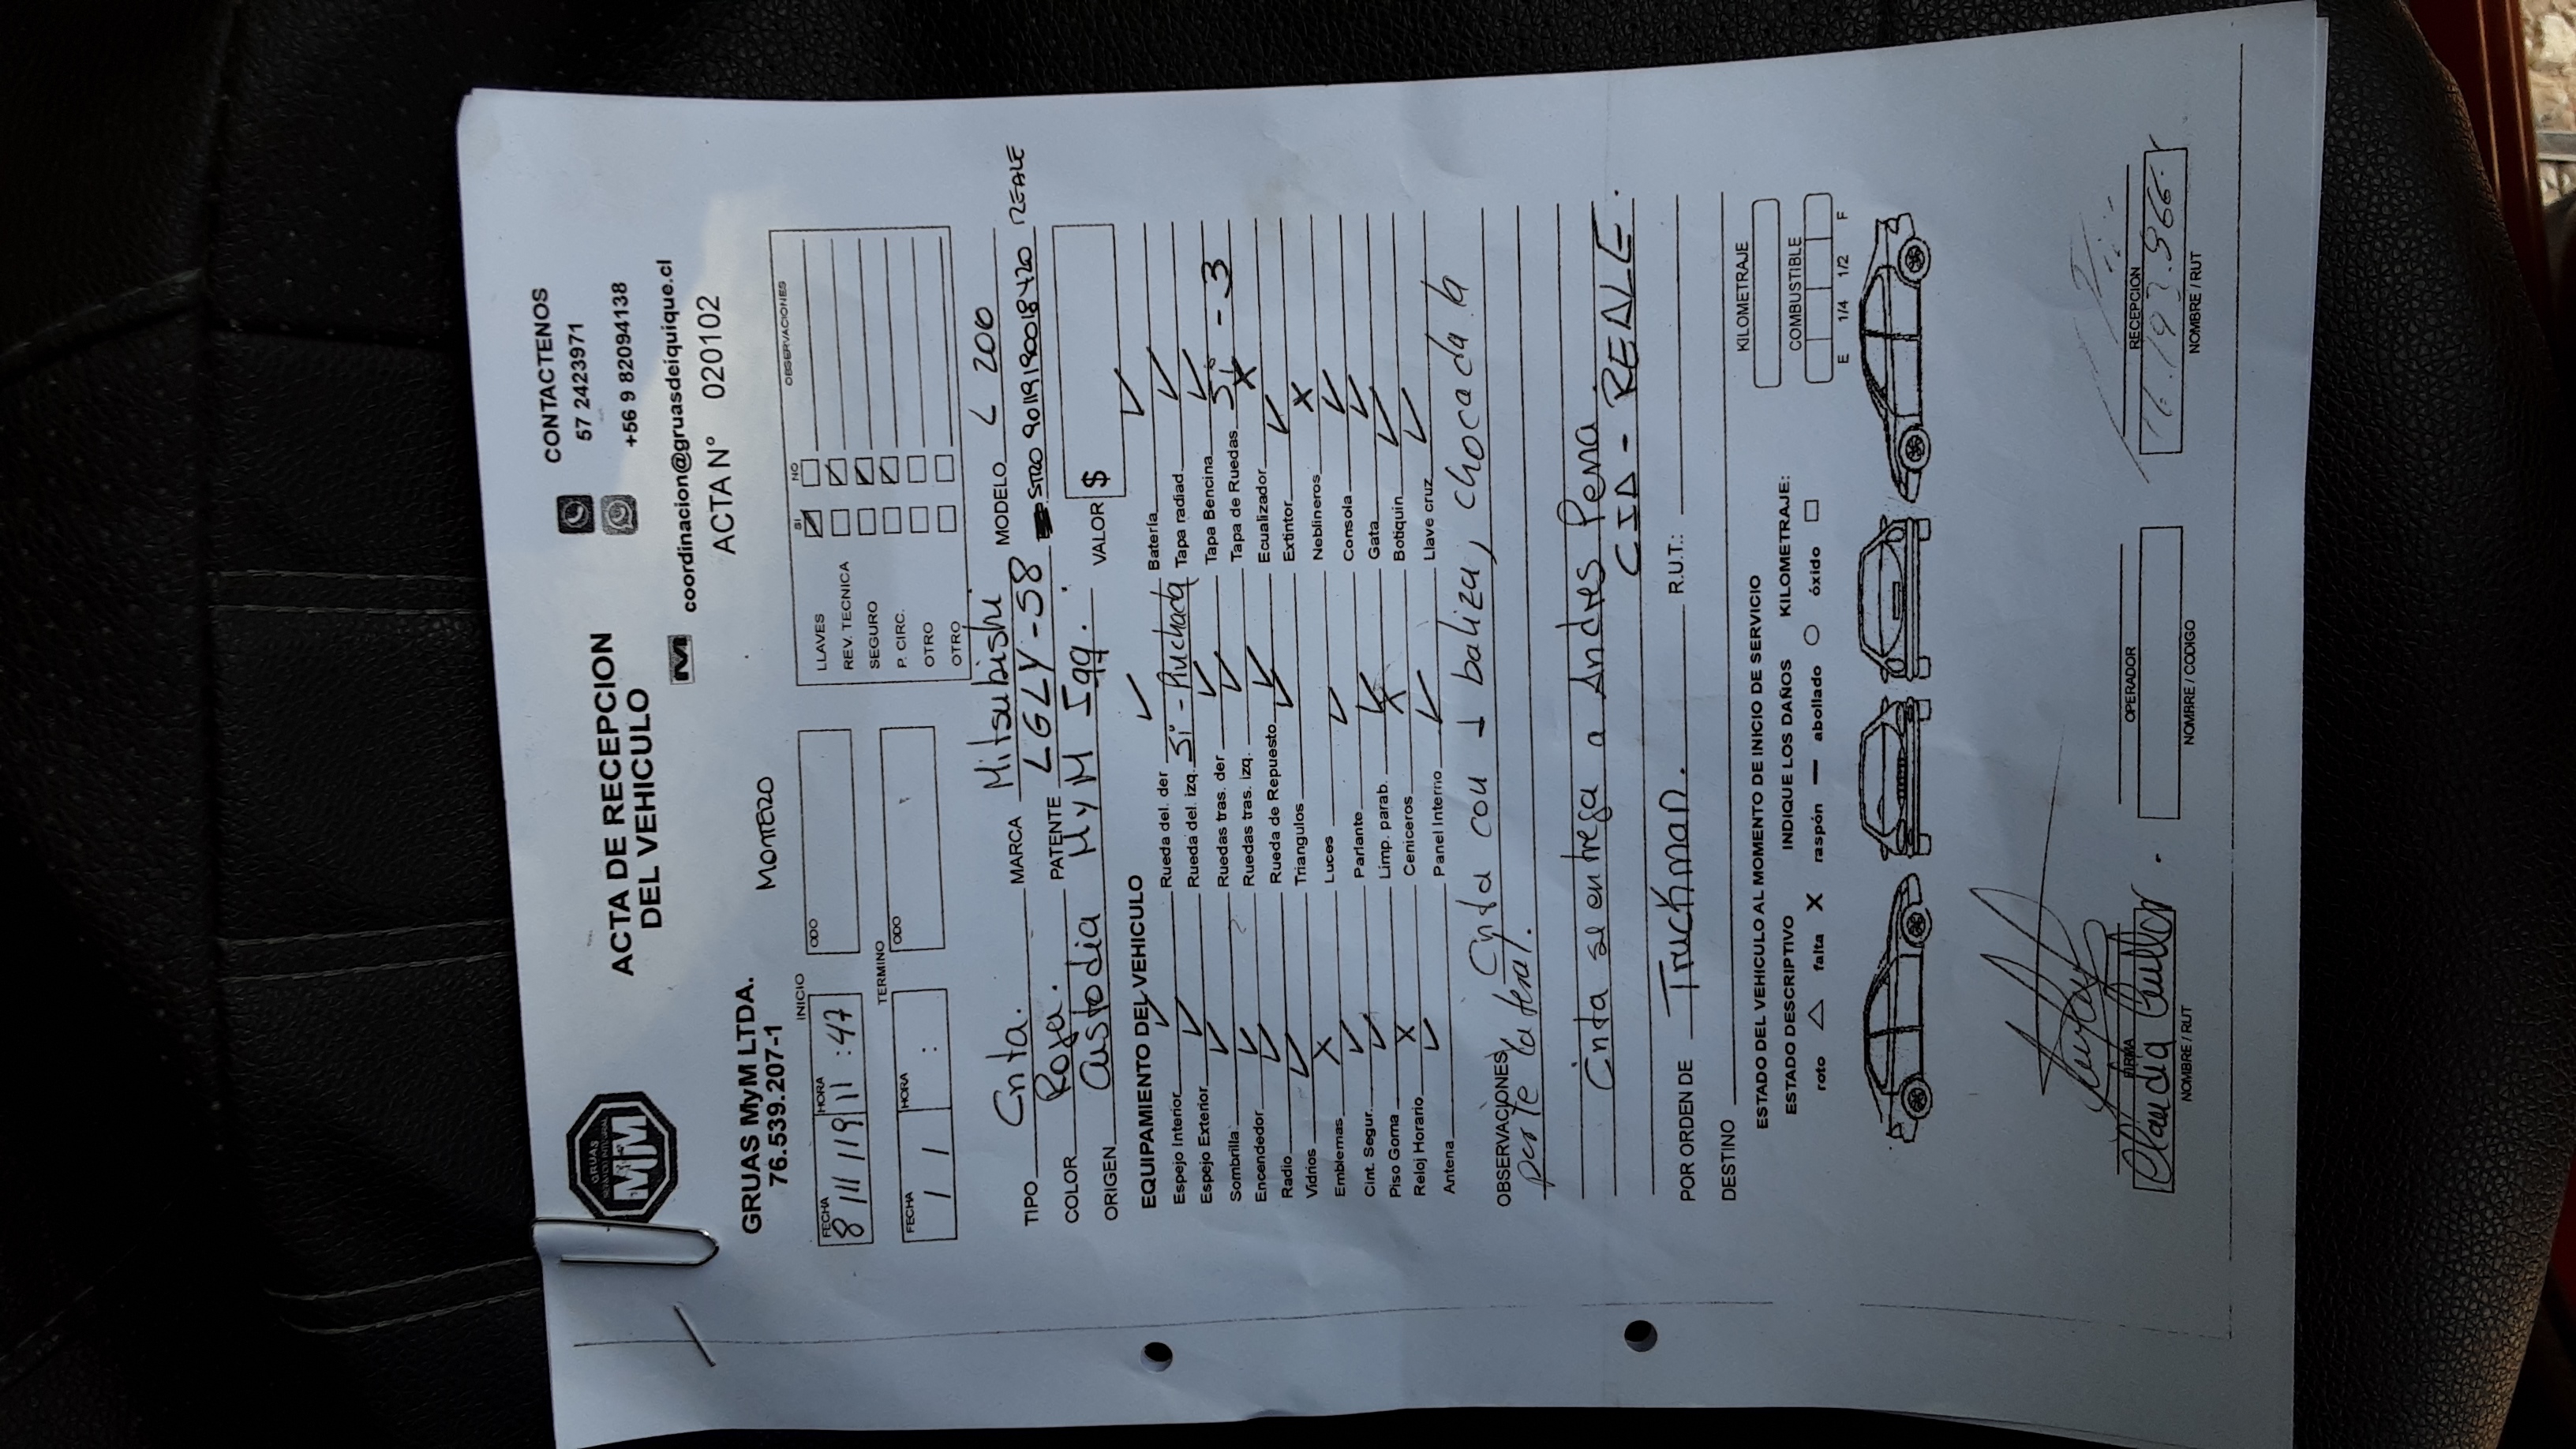 GRUAS
MM
ACTA DE RECEPCION
DEL VEHICULO
CONTACTENOS
57 24423971
+56 9 82094138
M coordinacion@gruasdeiquique.cl
GRUAS MyM LTDA.
76.539.207-1
MONTERO
ACTA N° 020102
INICIO
FECHA HORA ODO
8/11/19 11:47
TERMINO
FECHA HORA ODO
/ / :
SI NO OBSERVACIONES
LLAVES
REV. TECNICA
SEGURO
P. CIRC.
OTRO
OTRO
TIPO Cnta. MARCA Mitsubishi MODELO L 200
COLOR Roja. PATENTE LGLY-58 STRO 90119190018420 REALE
ORIGEN Custodia MyM 599. VALOR $
EQUIPAMIENTO DEL VEHICULO
Espejo Interior ✓ Rueda del. der ✓ Batería ✓
Espejo Exterior ✓ Rueda del. izq. Si - Pinchada Tapa radiad. ✓
Sombrilla ✓ Ruedas tras. der ✓ Tapa Bencina ✓
Encendedor ✓ Ruedas tras. izq. ✓ Tapa de Ruedas Si - 3
Radio ✓ Rueda de Repuesto ✓ Ecualizador X
Vidrios ✓ Triangulos ✓ Extintor ✓
Emblemas X Luces Neblineros X
Cint. Segur. ✓ Parlante ✓ Consola ✓
Piso Goma ✓ Limp. parab. ✓ Gata ✓
Reloj Horario X Ceniceros X Botiquin ✓
Antena ✓ Panel Interno ✓ Llave cruz ✓
OBSERVACIONES Cnta con 1 baliza, chocada la
parte lateral.
Cnta se entrega a Andres Pena
CIA - REALE.
POR ORDEN DE Truckman. R.U.T.:
DESTINO
ESTADO DEL VEHICULO AL MOMENTO DE INICIO DE SERVICIO
ESTADO DESCRIPTIVO INDIQUE LOS DAÑOS KILOMETRAJE:
roto △ falta X raspón — abollado ○ óxido □
KILOMETRAJE
COMBUSTIBLE
E 1/4 1/2 F
FIRMA OPERADOR RECEPCION
Claudia 16.193.966-
NOMBRE / RUT NOMBRE / CODIGO NOMBRE / RUT